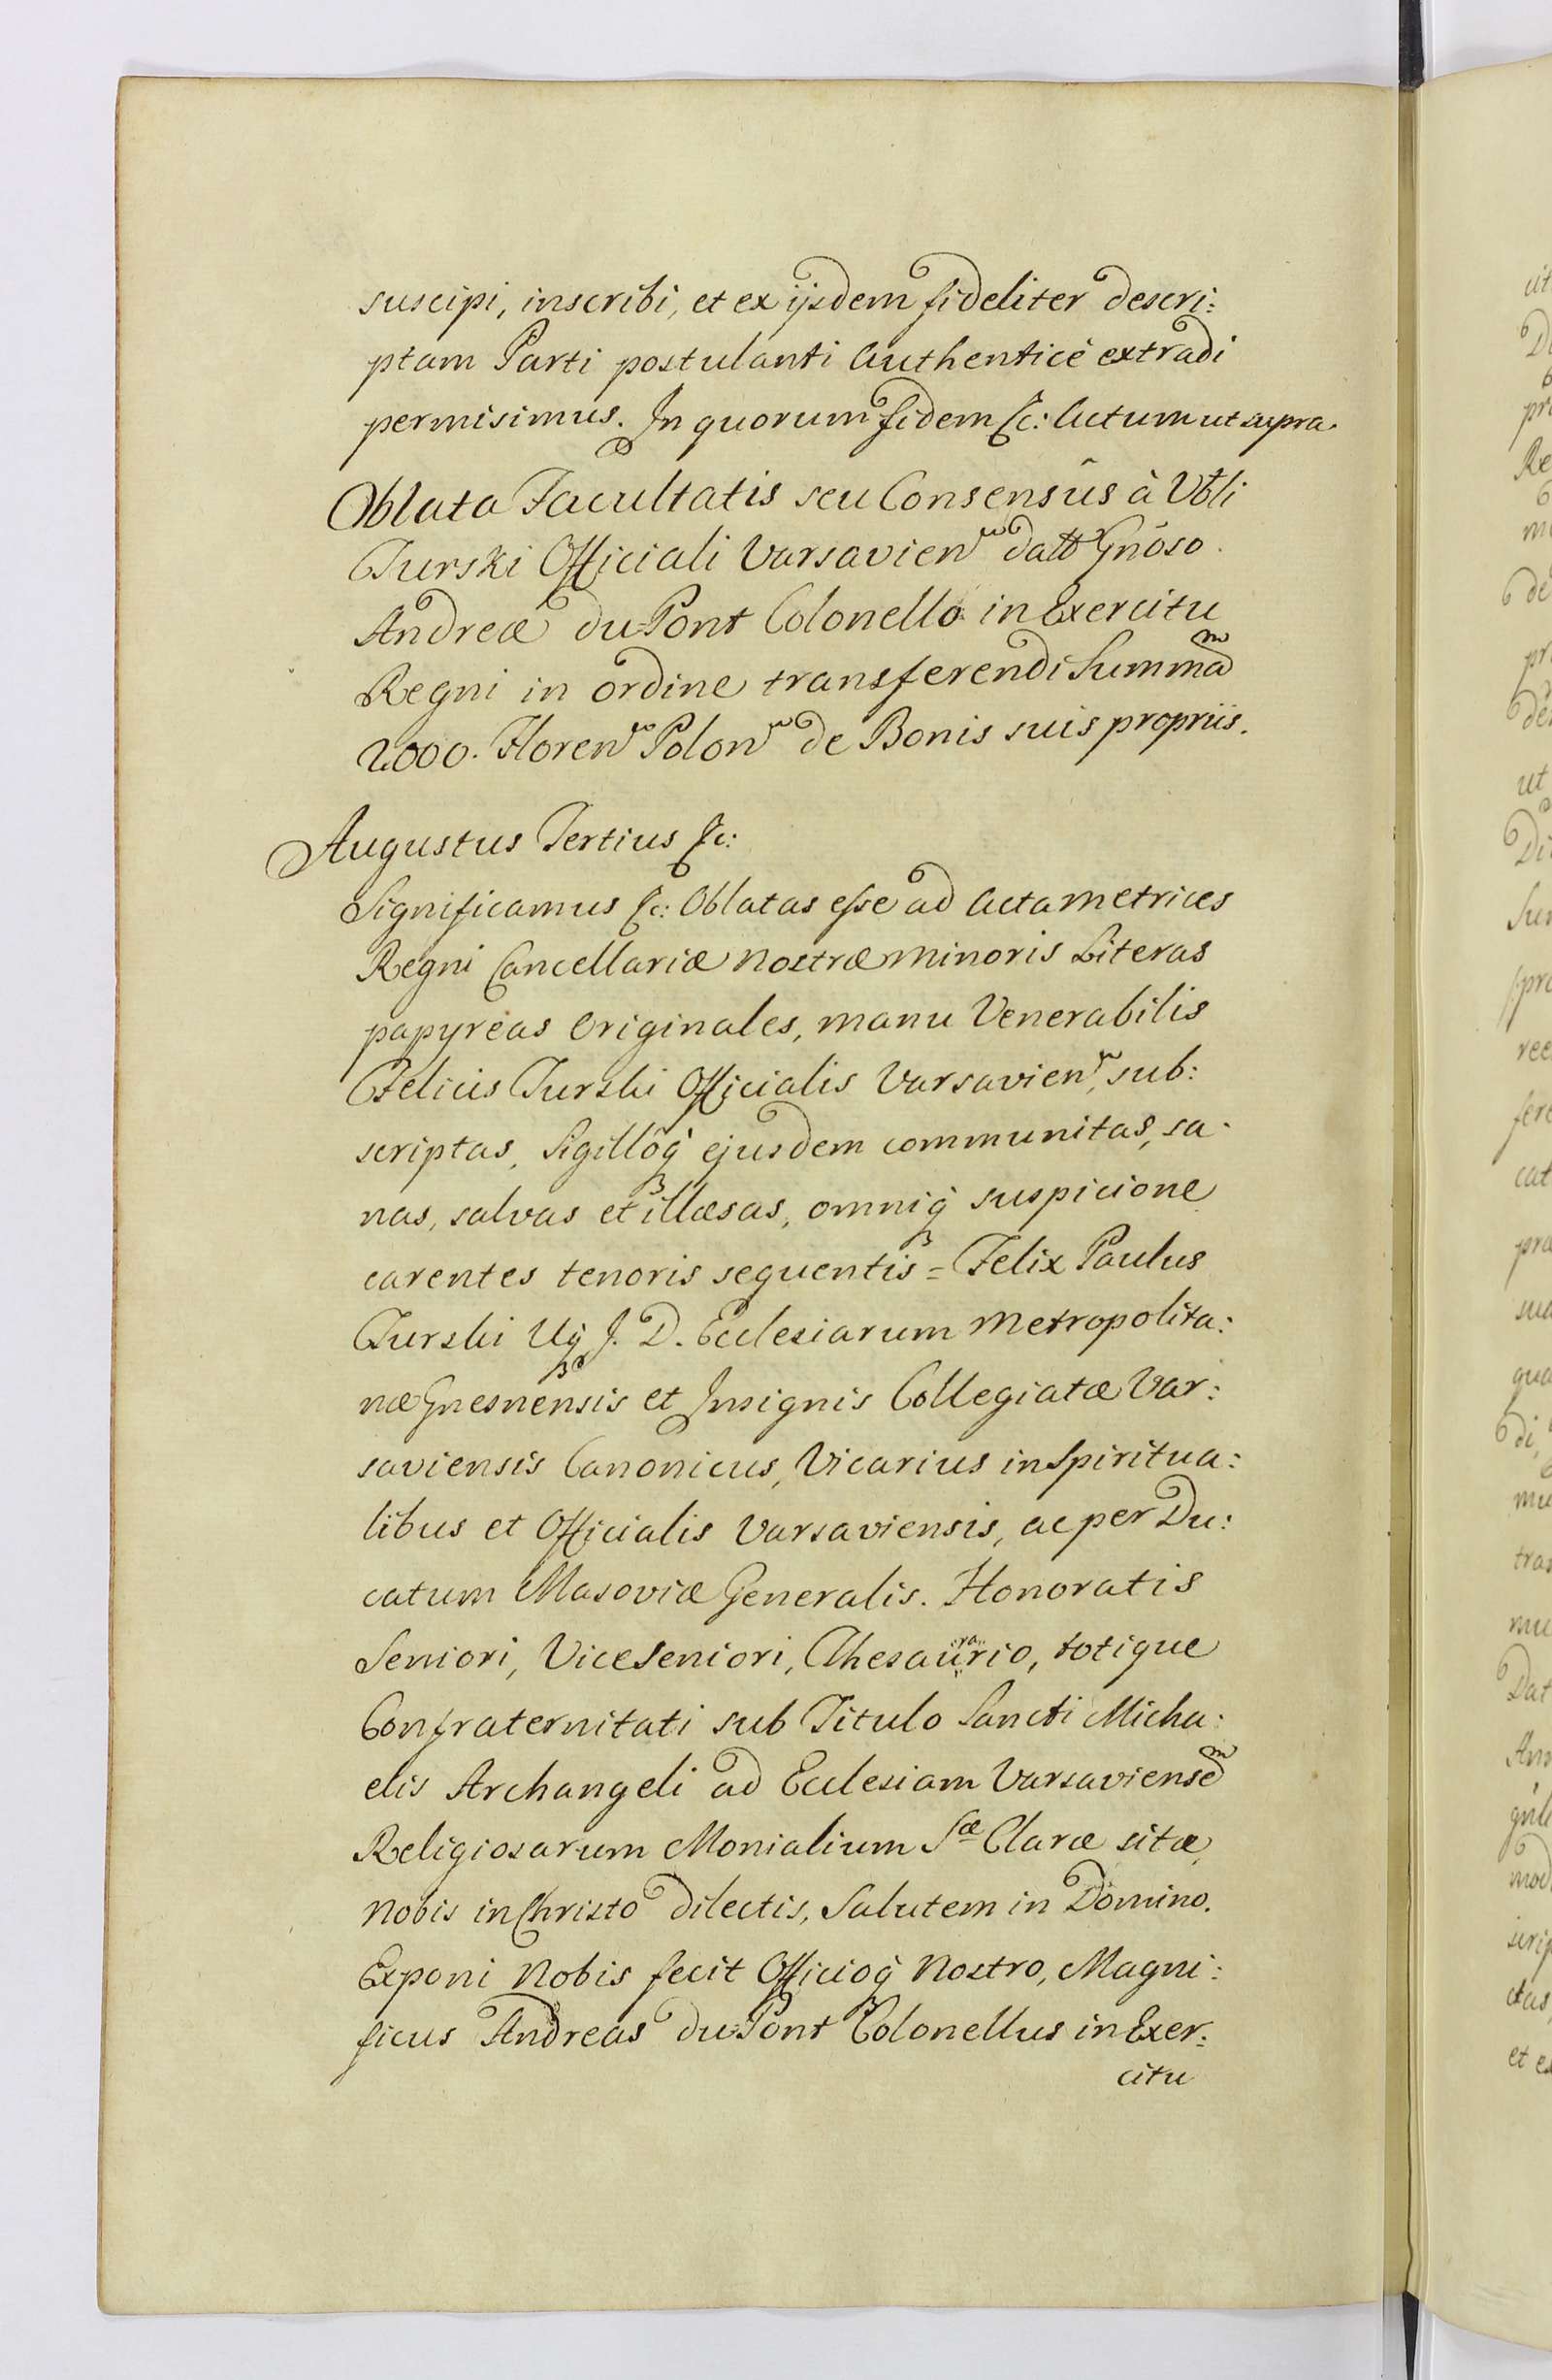 suscipi, inscribi, et ex ijsdem fideliter descri:
ptam Parti postulanti Authenticè extradi
permisimus. In quorum fidem &c: Actum ut supra
Oblata Facultatis seu Consensûs à Vbli
Turski Officiali Varsavien datt Gnõso
Andreæ du=Pont Colonello in Exercitu
Regni in ordine transferendi Summam
2000. Floren Polon de Bonis suis propriis.
Augustus Tertius &c:
Significamus &c: Oblatas esse ad Acta Metrices
Regni Cancellariæ Nostræ Minoris Literas
papyreas Originales, manu Venerabilis
Felicis Turski Officialis Varsavien, sub:
scriptas, Sigillõq ejusdem communitas, sa-
nas, salvas et illæsas, omniq suspicione
carentes tenoris sequentis = Felix Paulus
Turski Uq J. D. Ecclesiarum Metropolita:
næ Gnesnensis et Insignis Collegiatæ Var:
saviensis Canonicus, Vicarius in Spiritua:
libus et Officialis Varsaviensis, ac per Du:
catum Masoviæ Generalis. Honoratis
Seniori, Viceseniori, Thesaurario, totique
Confraternitati sub Titulo Sancti Micha:
elis Archangeli ad Ecclesiam Varsaviensem
Religiosarum Monialium Sæ Claræ sitæ,
Nobis in Christo dilectis, Salutem in Domino.
Exponi Nobis fecit Officioq Nostro, Magni:
ficus Andreas du=Pont Colonellus in Exer:
citu